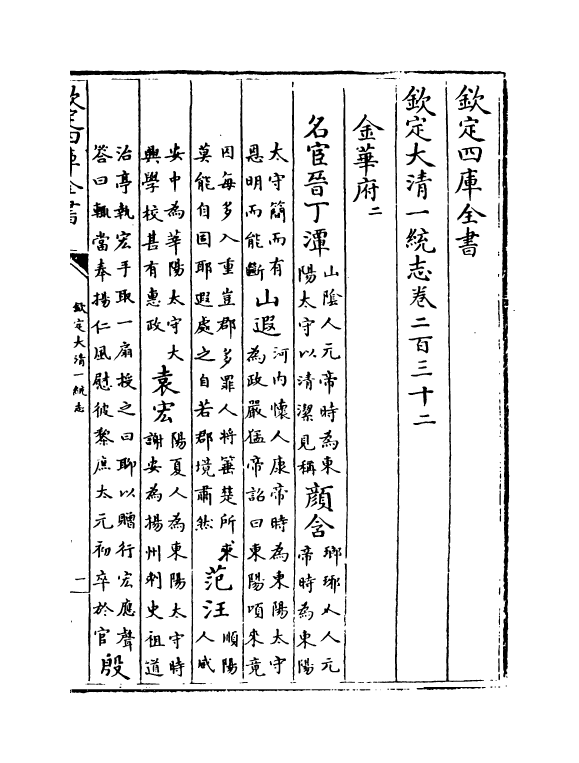 欽定四庫全書
欽定大清一統志卷二百三十二
金華府二
名宦晉丁潭山陰人元帝時為東陽太守以清潔見稱顔含瑯琊人元帝時為東陽
太守簡而有恩明而能斷山遐河内懷人康帝時為東陽太守為政嚴猛帝詔曰東陽頃来竟
因每多入重豈郡多罪人將箠楚所求莫能自固耶遐處之自若郡境肅然范汪順陽人咸
安中為華陽太守大興學校甚有惠政袁宏陽夏人為東陽太守時謝安為揚州刺史祖道
治亭執宏手取一扇授之曰聊以贈行宏應聲答曰輒當奉揚仁風慰彼黎庶太元初卒於官殷
欽定四庫全書
欽定大清一統志
一